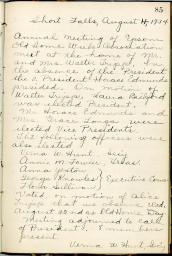 85
Short Falls, August 4, 1934
Annual Meeting of Epsom
Old Home Week Association
met at the home of Mr.
and Mrs. Walter Tripp. In
the absence of the President
the Vice President Horace Edmunds
presided. On motion of
Walter Tripp,
was elected President.
Mr. Horace Edmunds and
Mrs. Grace Longa were
elected Vice Presidents.
The following officers were
also elected
Verna W. Hunt, Sec'y
Annie M. Fowler Treas.
Anna Yeaton
George Knowles } Executive Com.
Flora Sullivan
Voted, on motion of Alice
Tripp that we observe Wed.
August 22nd as Old Home Day
Meeting adjourned to call
of President. 8 members
present.
Verna W. Hunt, Sec'y